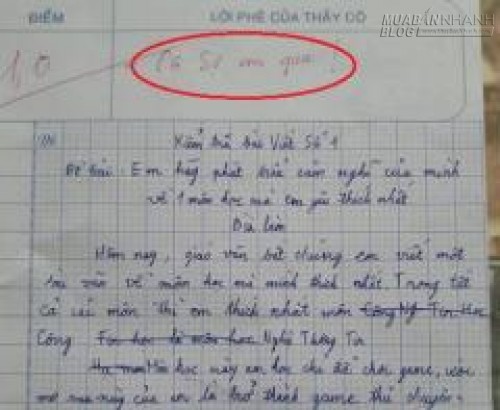 ĐIỂM LỜI PHÊ CỦA THẦY CÔ
MUABANNHANH
BLOG
1,0 Cô sợ em quá !
Kiểm tra bài Viết Số 1
Đề bài: Em hãy phát biểu cảm nghĩ của mình
về 1 môn học mà em yêu thích nhất
Bài làm
Hôm nay, giáo văn bắt chúng em viết một
bài văn về môn học mà mình thích nhất Trong tất
cả các môn thì em thích nhất môn Công Ng Tin Học
Công Tin học là môn học Nghệ Thông Tin
Môn học này em học chủ để chơi game, ước
mơ sau này của em là trở thành game thủ chuyên